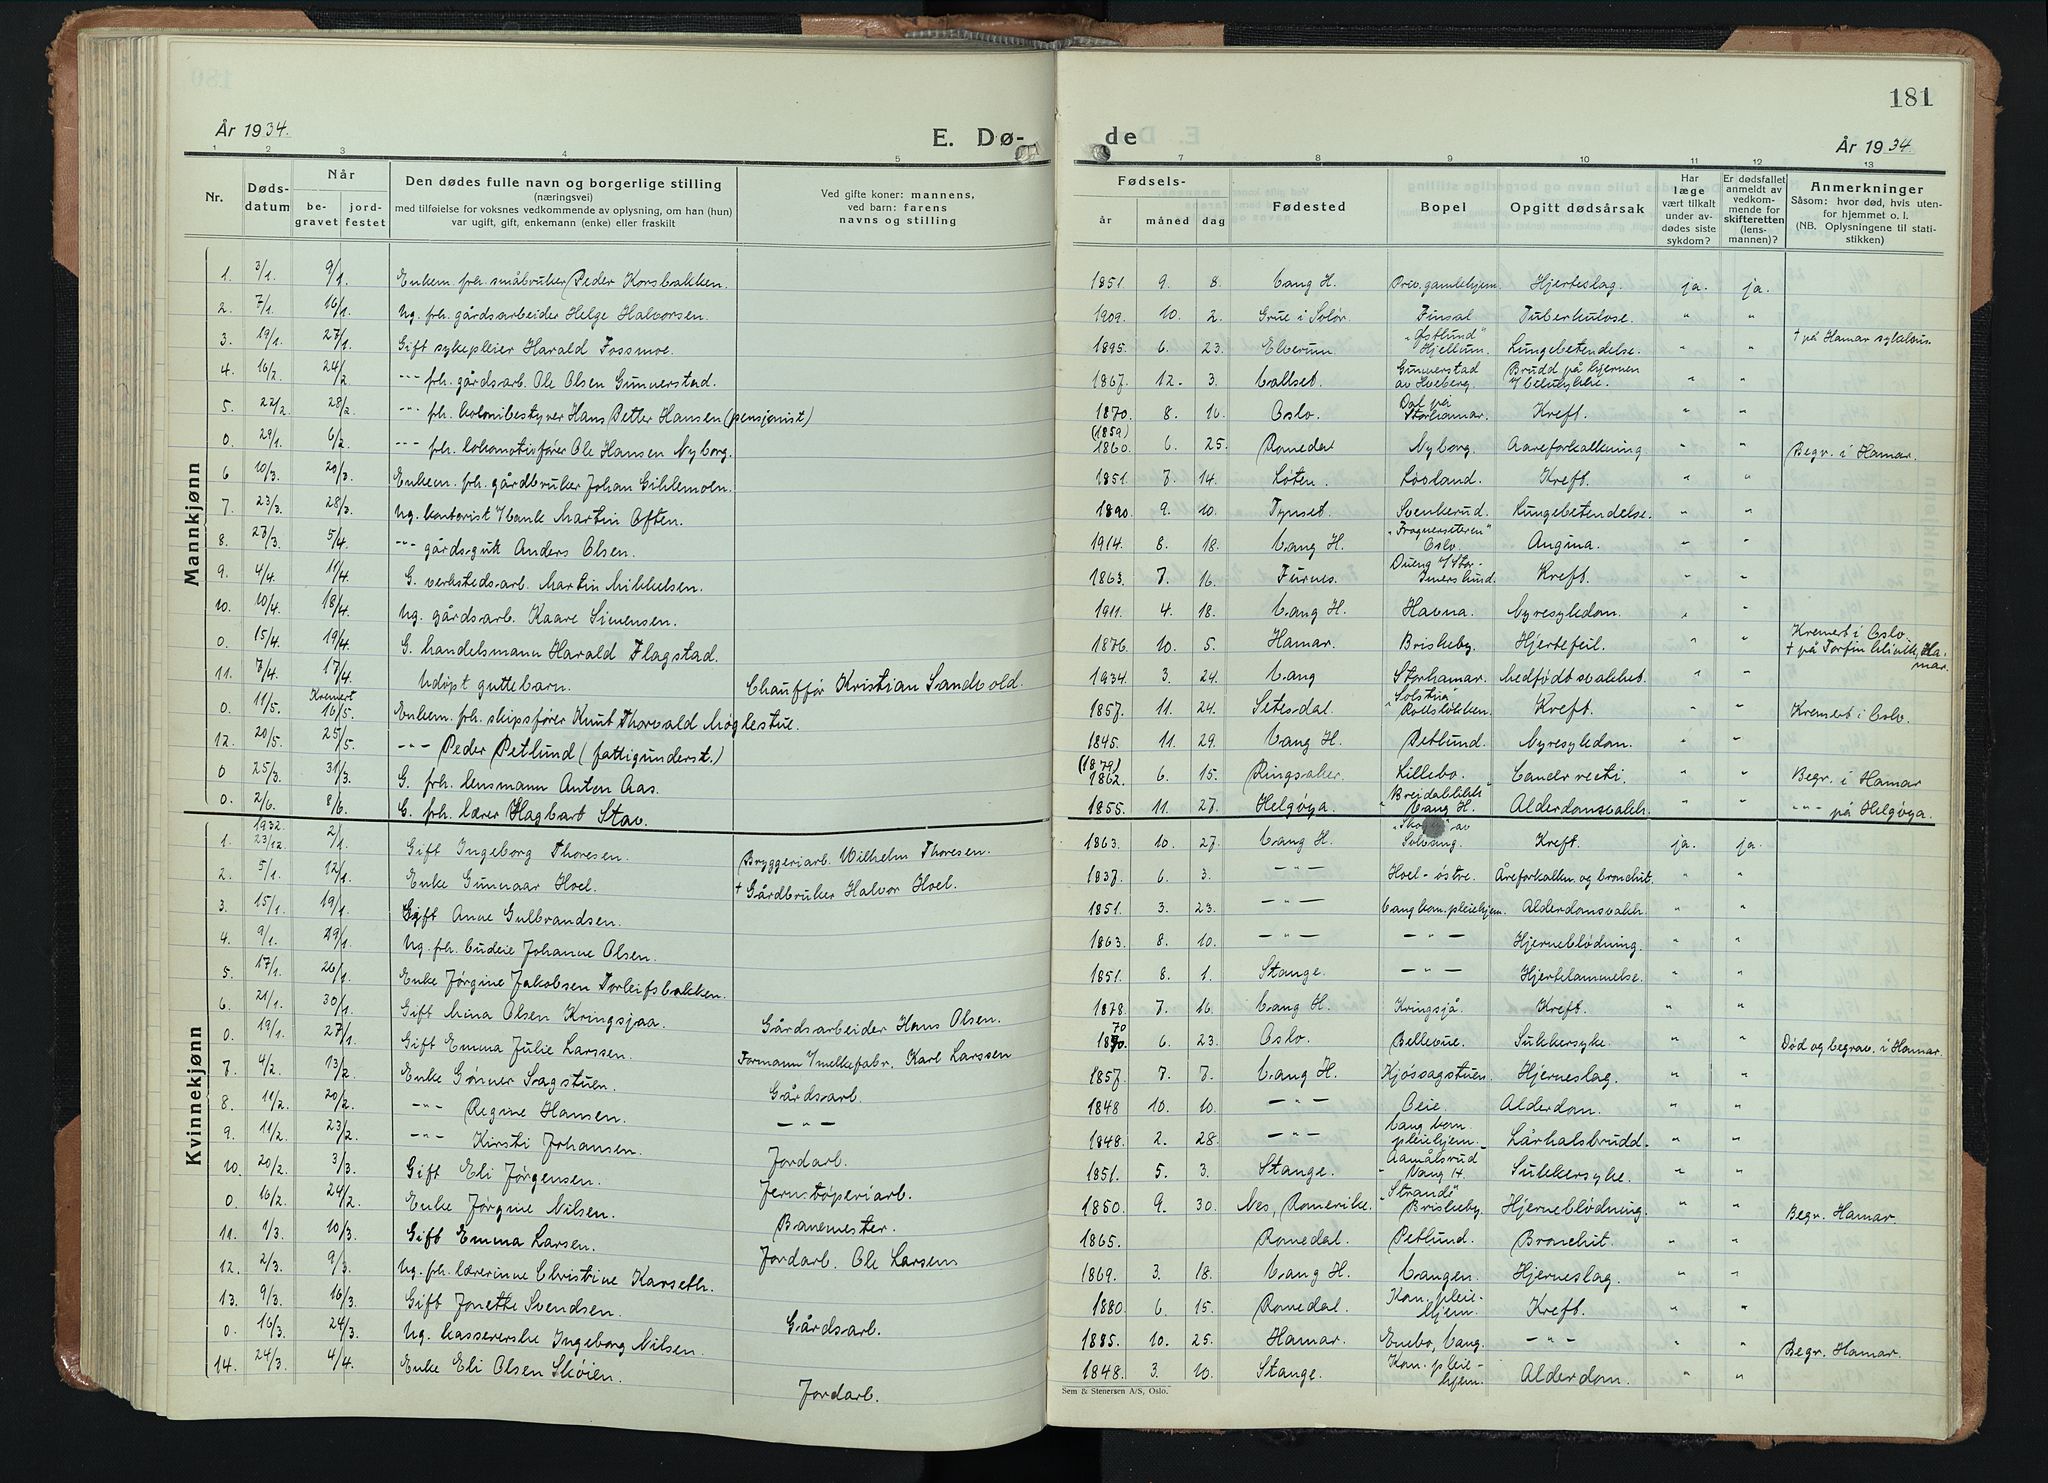 181
År 1934.
E. Dø-
de
År 1934.
1 2 3 4 5 7 8 9 10 11 12 13
Nr.
Døds-
datum
Når
be-
gravet
jord-
festet
Den dødes fulle navn og borgerlige stilling
(næringsvei)
med tilføielse for voksnes vedkommende av oplysning, om han (hun)
var ugift, gift, enkemann (enke) eller fraskilt
Ved gifte koner: mannens,
ved barn: farens
navns og stilling
Fødsels-
år måned dag
Fødested
Bopel
Opgitt dødsårsak
Har
læge
vært tilkalt
under av-
dødes siste
sykdom?
Er dødsfallet
anmeldt av
vedkom-
mende for
skifteretten
(lens-
mannen)?
Anmerkninger
Såsom: hvor død, hvis uten-
for hjemmet o. l.
(NB. Oplysningene til stati-
stikken)
Mannkjønn
1. 3/1. 9/1. Enkem. frh. småbruker Peder Korsbakken. 1851. 9. 8. Vang H. Prev. gamlehjem. Hjerteslag. ja. ja.
2. 7/1. 16/1. Ug. frh. gårdsarbeider Helge Halvorsen. 1909. 10. 2. Grue i Solør. Finsal Tuberkulose. " "
3. 19/1. 27/1. Gift sykepleier Harald Fossmoe. 1895. 6. 23. Elverum "Østlund" Hjellum. Lungebetendelse. " " † på Hamar sykehus.
4. 16/2. 24/2 -"- frh. gårdsarb. Ole Olsen Gunnerstad. 1867. 12. 3. Vallset. Gunnerstad av Hveberg. Brudd på hjernen " "
5. 22/2. 28/2. -"- frh. kolonibestyrer Hans Petter Hansen (pensjonist) 1870. 8. 16. Oslo. Dal på Storhamar. Kreft. " "
0. 29/1. 6/2. -"- frh. lokomotivfører Ole Hansen Nyborg. (1859) 1860. 6. 25. Romedal Nyborg. Aareforkalkning " " Begr. i Hamar.
6 10/3. 20/3. Enkem. frh. gårdbruker Johan Gihlemoen. 1851. 7. 14. Løten. Losland. Kreft. " "
7. 23/3. 28/3. Ug. kontorist i bank Martin Often. 1890. 9. 10. Tynset. Svenkerud. Lungebetendelse. " "
8. 27/3. 5/4. -"- gårdsgutt Anders Olsen. 1914. 8. 18. Vang H. "Frognerseteren" Oslo. Angina. " "
9. 4/4. 11/4. G. verkstedsarb. Martin Mikkelsen. 1863. 7. 16. Furnes. Imerslund. Kreft. " "
10. 10/4. 18/4. Ug. gårdsarb. Kaare Simensen. 1911. 4. 18. Vang H. Havna. Nyresykdom. " "
0. 15/4. 19/4. G. handelsmann Harald Flagstad. 1876. 10. 5. Hamar. Briskeby. Hjertefeil. " " Kremert i Oslo. † på Torfin klinikk, Ha- mar.
11. 7/4. 17/4. Udøpt guttebarn. Chauffør Kristian Sandvold. 1934. 3. 24. Vang Storhamar. Medfødt svakhet. " "
0. 11/5. Kremert 16/5. Enkem. frh. skipsfører Knut Thorvald Møglestue. 1857. 11. 24. Setesdal. "Solstua" Rollsløkken. Kreft. " " Kremert i Oslo.
12. 20/5. 25/5. -"- Peder Petlund (fattigunderst.) 1845. 11. 29. Vang H. Petlund. Nyresykdom. " "
0 25/3. 31/3. G. frh. lensmann Anton Aas. (1879) 1862. 6. 15. Ringsaker. Lillebo. Cancer recti. " " Begr. i Hamar
0. 2/6. 8/6. G. frh. lærer Hagbart Stav. 1855. 11. 27. Helgøya. "Breidablikk" Vang H. Alderdomsvakh. " " -"- på Helgøya.
Kvinnekjønn
1. 1932. 23/12. 2/1. Gift Ingeborg Thoresen. Bryggeriarb. Wilhelm Thoresen. 1863. 10. 27. Vang H. av Solvang. Kreft. ja. ja.
2. 5/1. 12/1. Enke Gunnaar Hoel. † Gårdbruker Halvor Hoel. 1837. 6. 3. -"- Hoel - østre. Åreforkalkn. og bronchit. " "
3. 15/1. 19/1. Gift Anne Gulbrandsen. 1851. 3. 23. -"- Vang kom. pleiehjem. Alderdomsvakh. " "
4. 9/1. 29/1. Ug. frh. budeie Johanne Olsen. 1863. 8. 10. -"- -"- Hjerneblødning. " "
5. 17/1. 26/1. Enke Jørgine Jakobsen Torleifsbakken. 1851. 8. 1. Stange. -"- Hjertelammelse. " "
6. 21/1. 30/1. Gift Mina Olsen Kringsjaa. Gårdsarbeider Hans Olsen. 1878. 7. 16. Vang H. Kringsjå Kreft. " "
0. 19/1. 27/1. Gift Emma Julie Larssen. Formann i melkefabr. Karl Larssen 1870. 6. 23. Oslo. Bellevue. Sukkersyke. " " Død og begrav. i Hamar.
7. 4/2. 13/2. Enke Gønner Sagstuen. Gårdsarb. 1857. 7. 7. Vang H. Kjøssagstuen. Hjerneslag. " "
8. 11/2. 20/2. -"- Regine Hansen. -"- 1848 10. 10. -"- Beie. Alderdom. " "
9. 11/2. 23/2. -"- Kirsti Johansen. Jordarb. 1848. 2. 28. -"- Vang kom. pleiehjem. Lårhalsbrudd. " "
10. 20/2. 3/3. Gift Eli Jørgensen. Jernstøperiarb. 1851. 5. 3. Stange. Aamålsrud Vang H. Sukkersyke. " "
0. 16/2. 24/2. Enke Jørgine Nilsen. Banemester. 1850. 9. 30. Nes, Romerike. "Strande" Briskeby. Hjerneblødning " " Begr. Hamar.
11. 1/3. 10/3. Gift Emma Larsen. Jordarb. Ole Larsen 1865. Romedal. Petlund. Bronchit. " "
12. 2/3. 9/3. Ug. frh. lærerinne Christine Karseth. 1869. 3. 18. Vang H. Vangen. Hjerneslag. " "
13. 9/3. 16/3. Gift Jonette Svendsen. Gårdsarb. 1880 6 15. Romedal. Kom. pleie- hjem. Kreft. " "
0. 16/3. 24/3. Ug. kassererske Ingeborg Nilsen. 1885. 10. 25. Hamar. Enebo, Vang. -"- " " Begr. Hamar.
14. 24/3. 4/4. Enke Eli Olsen Skøien. Jordarb. 1848. 3. 10. Stange. Kom. pleie- hjem. Alderdom. " "
Sem & Stenersen A/S, Oslo.